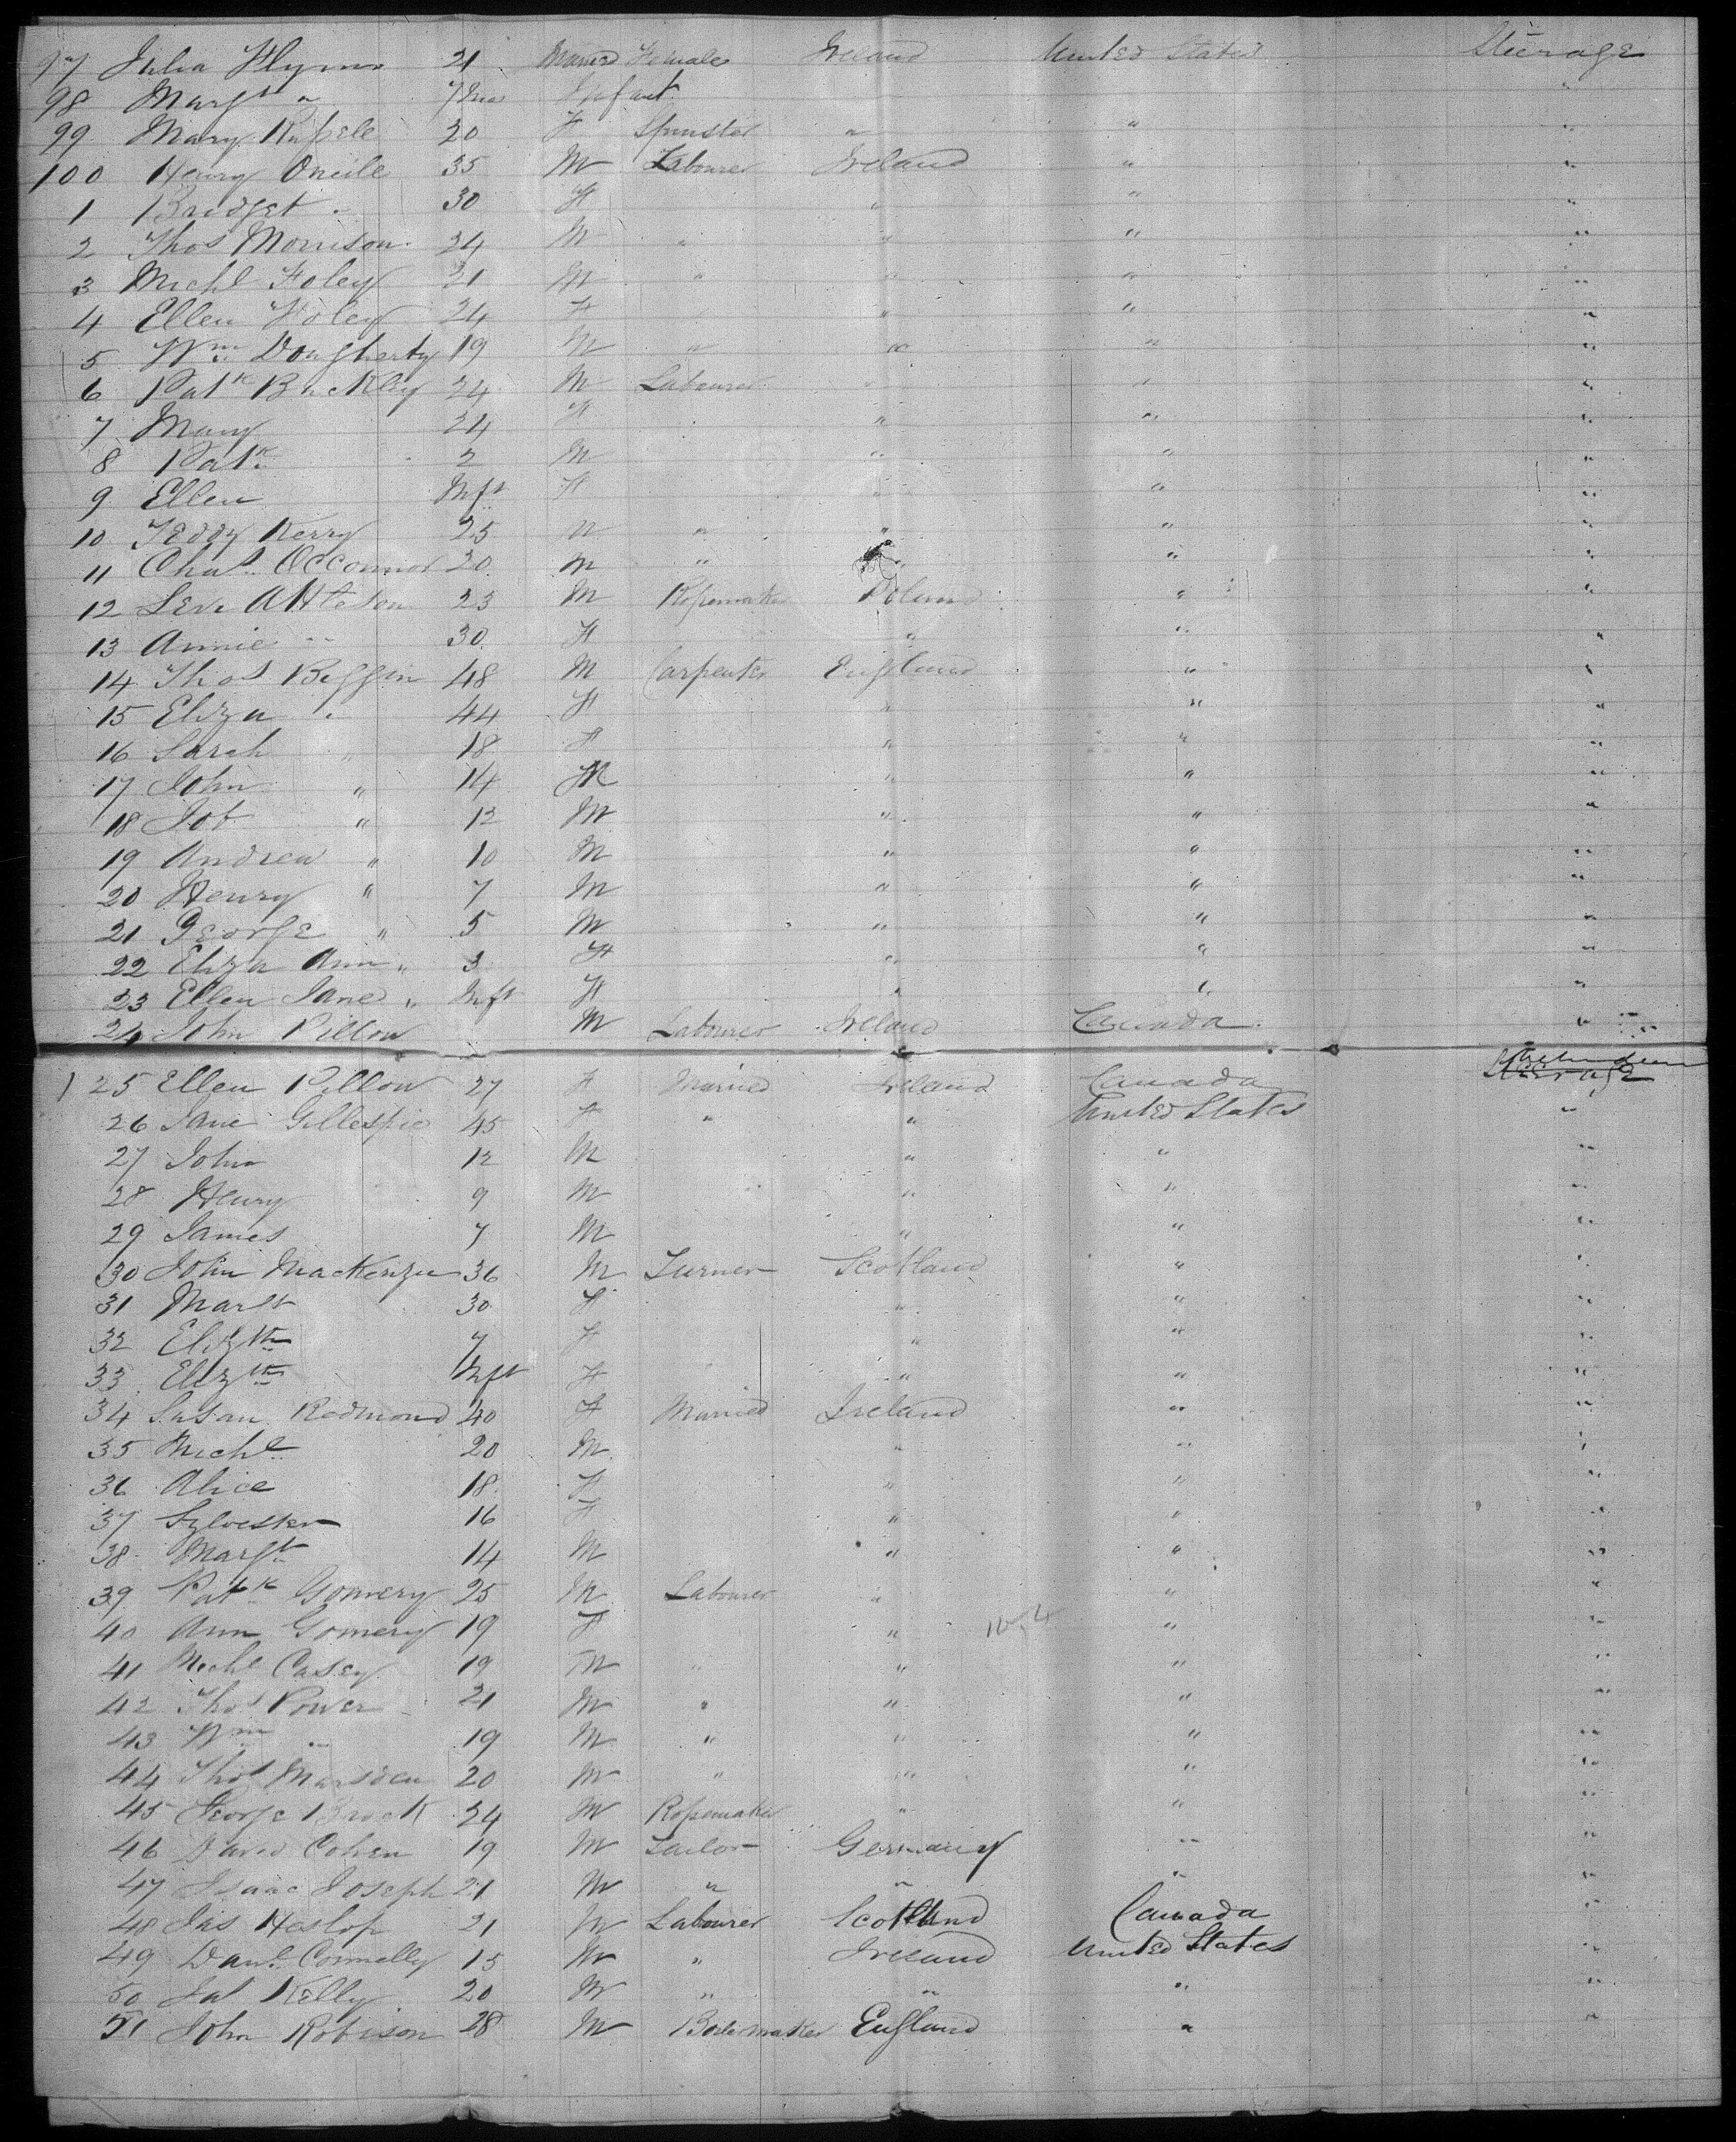 97 Julia Flynn 21 Married Female Ireland United States Steerage
98 Margt " 7 Mos Infant "
99 Mary 20 F Spinster " " "
100 Henry Oneile 35 M Labourer Ireland " "
1 Bridget " 30 F " " "
2 Thos Morrison 24 M " " " "
3 Michl Foley 21 M " " " "
4 Ellen Foley 24 F " " "
5 Wm Dougherty 19 M " " " "
6 Patk Buckley 24 M Labourer " " "
7 Mary 24 F " " "
8 Patk 2 M " " "
9 Ellen Inft F " " "
10 Teddy Kerry 25 " " " "
11 Chas OCconnor 20 M " " " "
12 Levi 23 M Ropemaker Poland " "
13 Annie " 30 F " " "
14 Thos Biffin 48 M Carpenter England " "
15 Eliza " 44 F " " "
16 Sarah " 18 F " " "
17 John " 14 M " " "
18 Job " 12 M " " "
19 Andrew " 10 M " " "
20 Henry " 7 M " " "
21 George " 5 M " " "
22 Eliza Ann " 3 F " " "
23 Ellen Jane " Inft F " " "
24 John Pillow M Labourer Ireland Canada "
125 Ellen Pillow 27 F Married Ireland Canada Steerage
26 Jane Gillespie 45 F " " United States "
27 John 12 M " " "
28 Henry 9 M " " "
29 James 7 M " " "
30 John MacKenzie 36 M Turner Scotland " "
31 Margt 30 F " " "
32 Elizth 7 F " " "
33 Elizth Inft F " " "
34 Susan Redmond 40 F Married Ireland " "
35 Michl 20 M " " "
36 Alice 18 F " " "
37 Sylvester 16 F " " "
38 Margt 14 M " " "
39 Patk Gomery 25 M Labourer " " "
40 Ann Gomery 19 F " " "
41 Michl Casey 19 M " " " "
42 Thos Power 21 M " " " "
43 Wm " 19 M " " " "
44 Thos Marsden 20 M " " " "
45 George Brock 24 M Ropemaker " " "
46 David Cohen 19 M Tailor Germany " "
47 Isaac Joseph 21 M " " " "
48 Jas Heslop 21 M Labourer Scotland Canada "
49 Danl Connelly 15 M " Ireland United States "
50 Jas Kelly 20 M " " " "
51 John Robison 28 M Boilermaker England " "